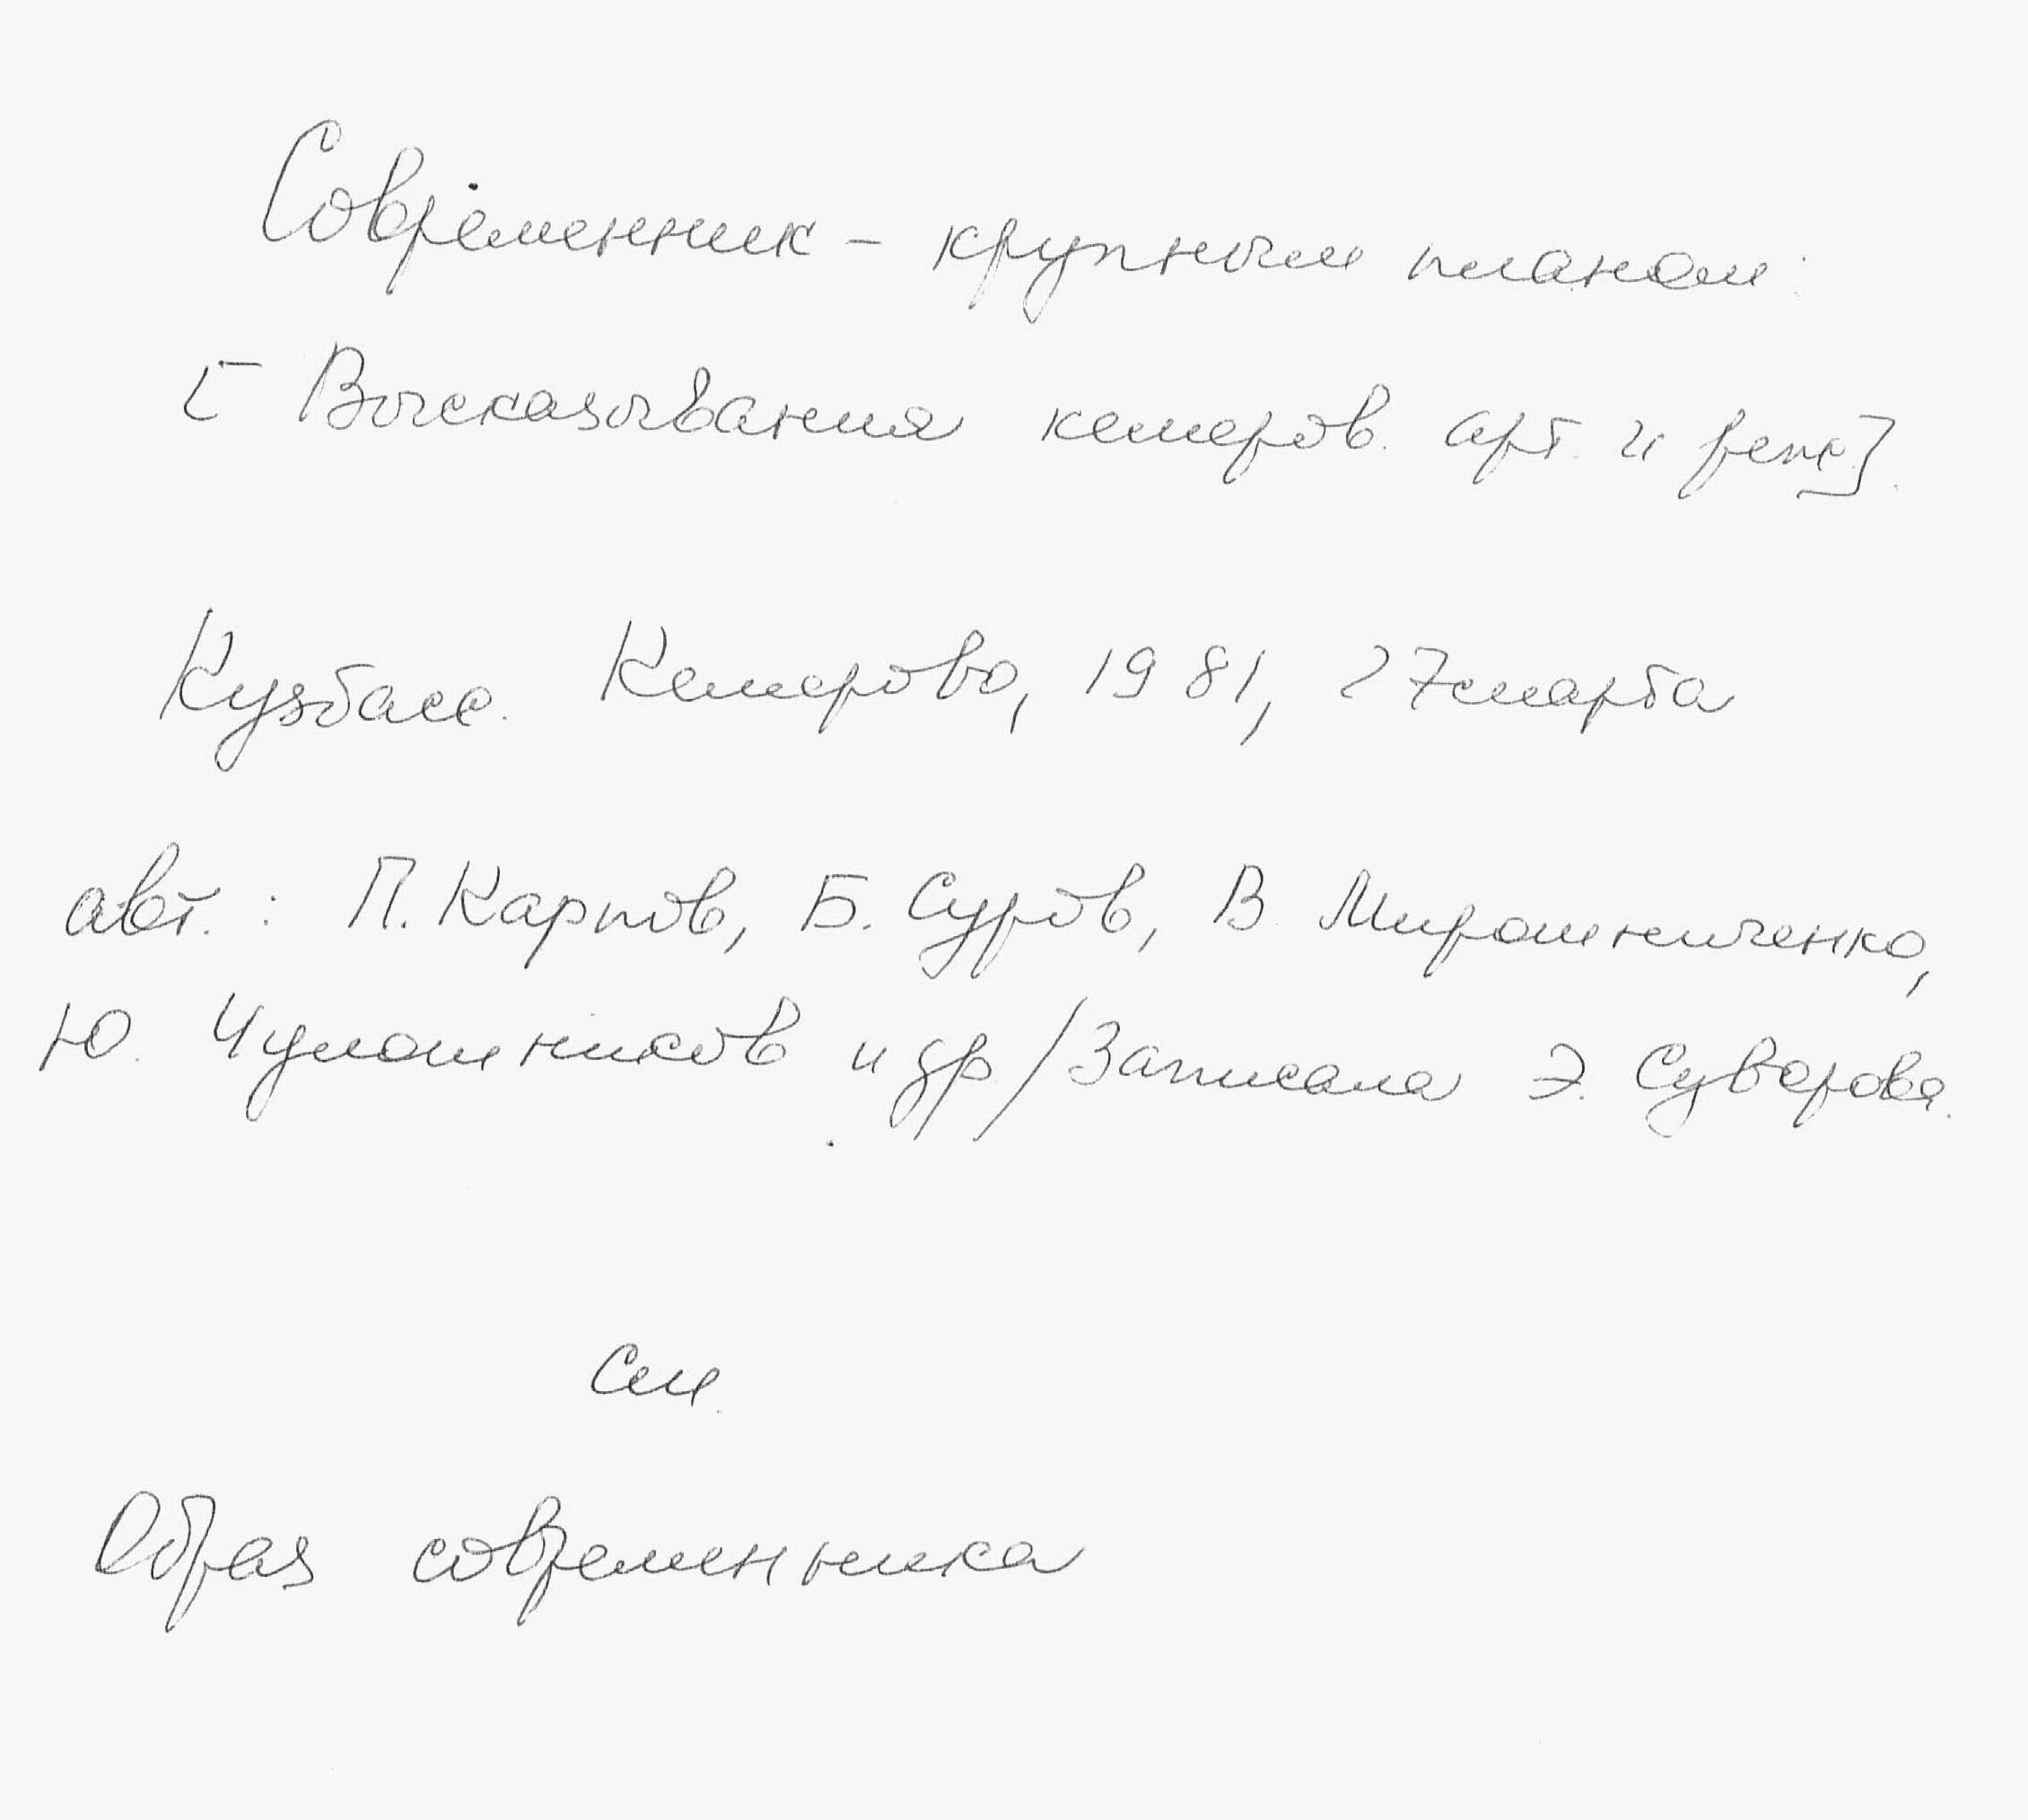 Современник – крупным планом:
[Высказывания кемеров. арт. и реж.].
Кузбасс. Кемерово, 1981, 27 марта
авт.: П. Карпов, Б. Суров, В. Мирошниченко,
Ю. Чулошников и др./Записала Э. Суворова.
См.
Образ современника